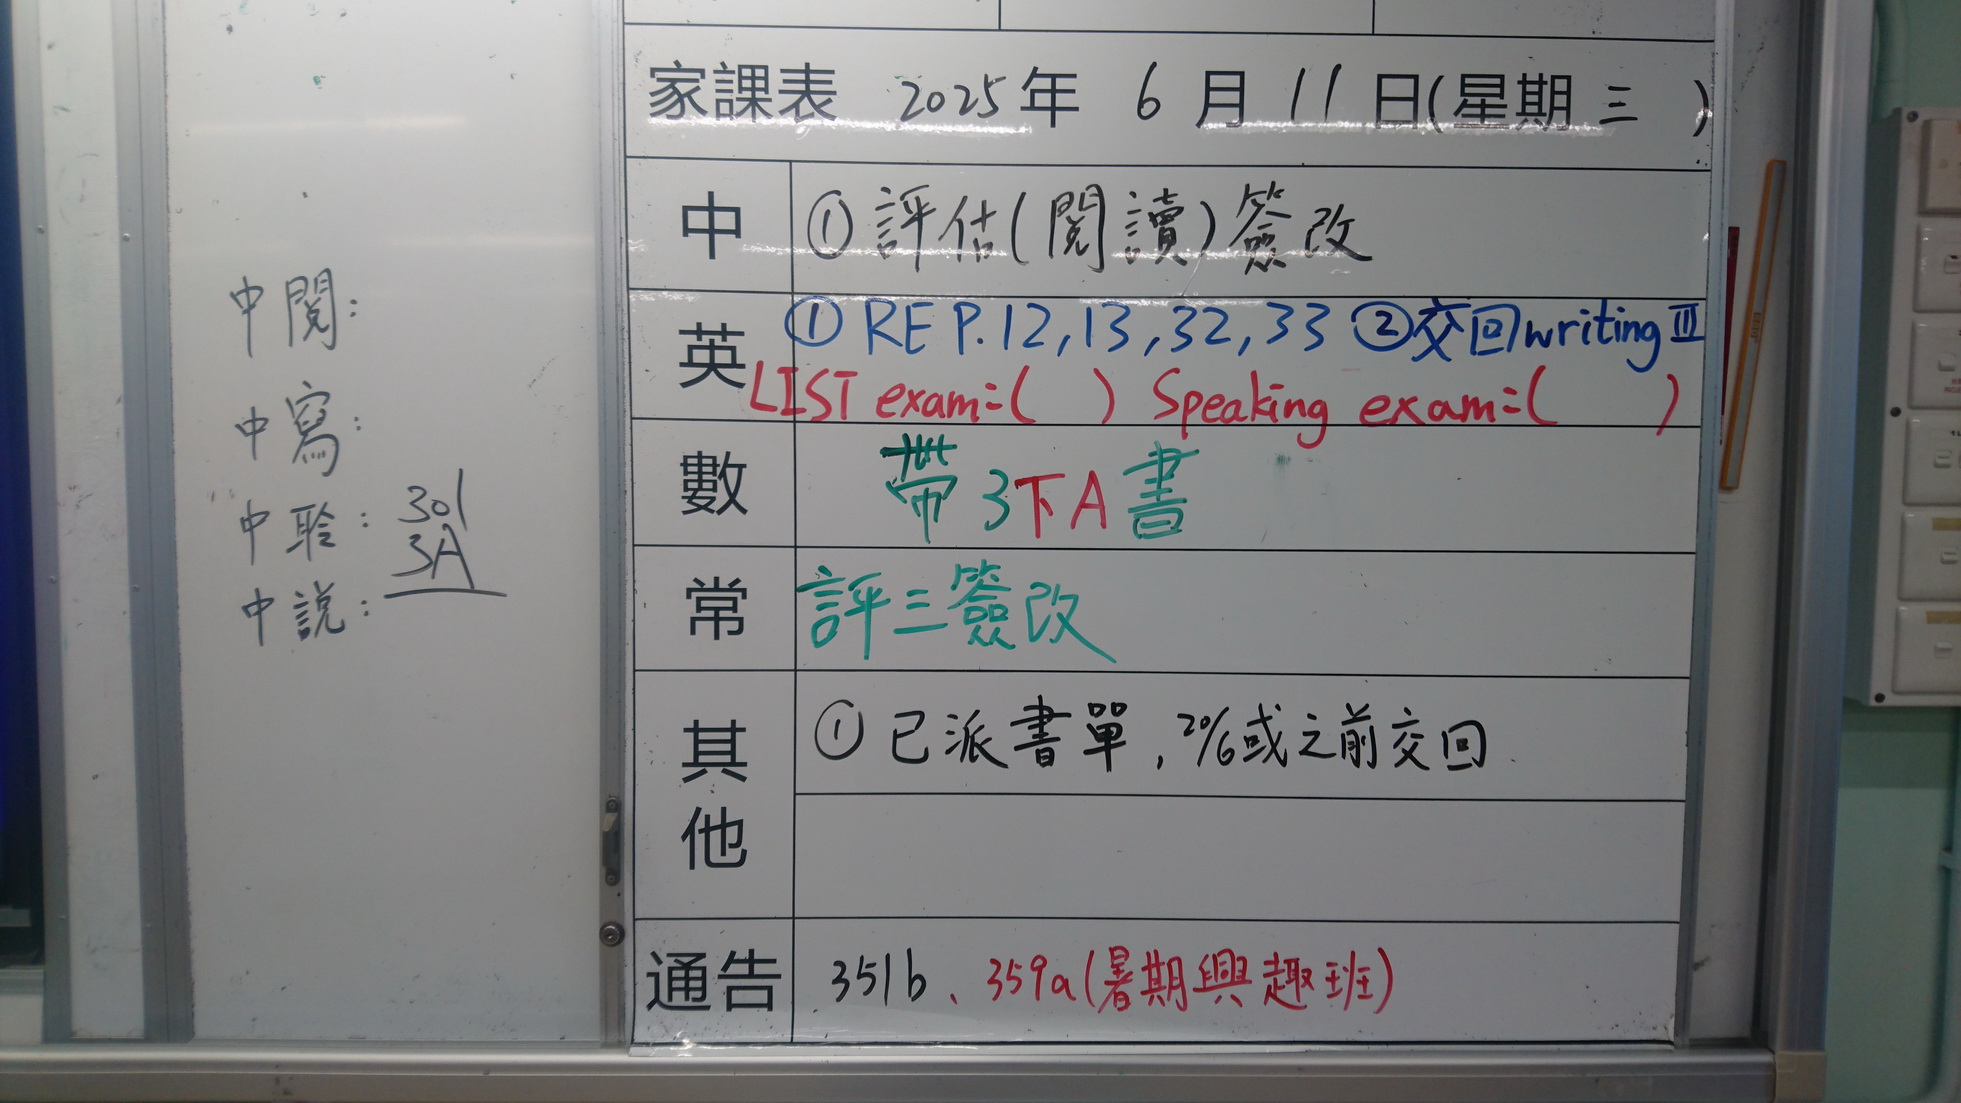 中閱:
中寫:
中聆: 301
3A
中說:
家課表 2025年 6月11日(星期三)
中 ①評估(閱讀)簽改
英 ① RE P.12,13,32,33 ②交回writing III
LIST exam=( ) Speaking exam=( )
數 帶3下A書
常 評三簽改
其他 ①已派書單,20/6或之前交回
通告 351b、359a(暑期興趣班)